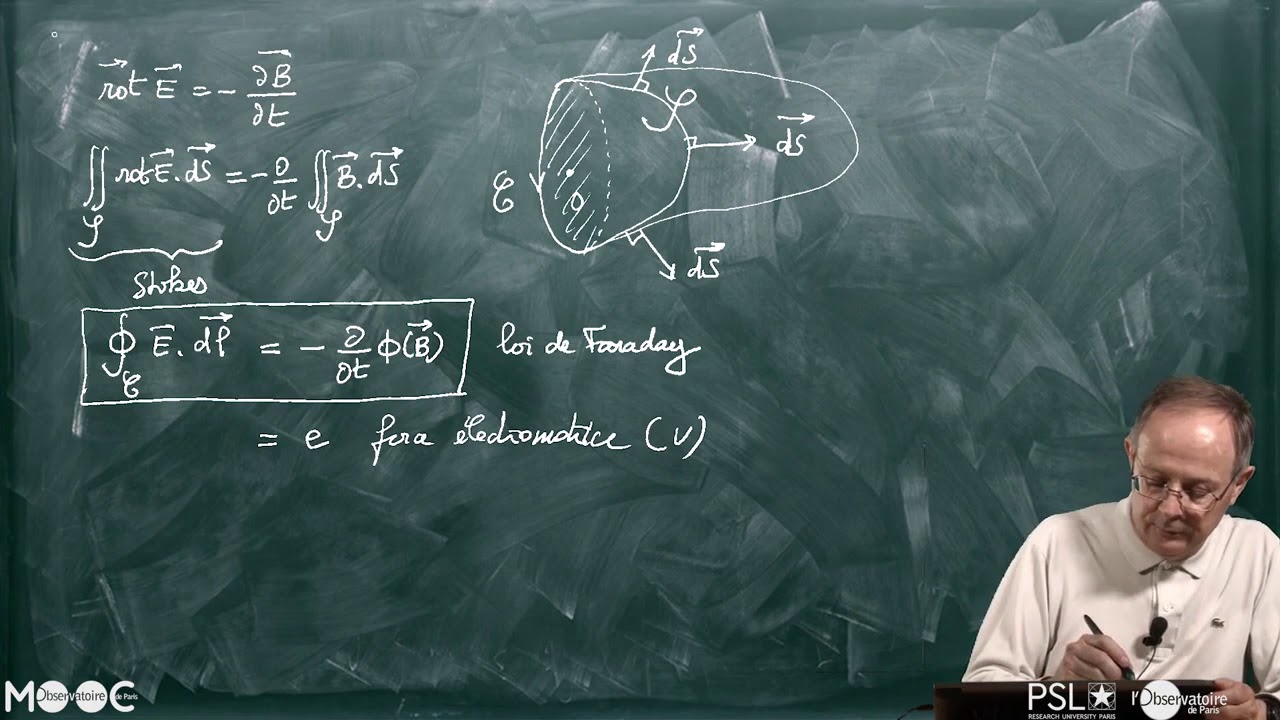 rot E = - ∂B/∂t
∬ rot E . dS = - ∂/∂t ∬ B . dS
S S
Stokes
∮ E . dl = - ∂/∂t ϕ(B) loi de Faraday
C
= e force électromotrice (V)
dS
S
dS
C
O
dS
MOOC
l'Observatoire de Paris
PSL
RESEARCH UNIVERSITY PARIS
l'Observatoire
de Paris